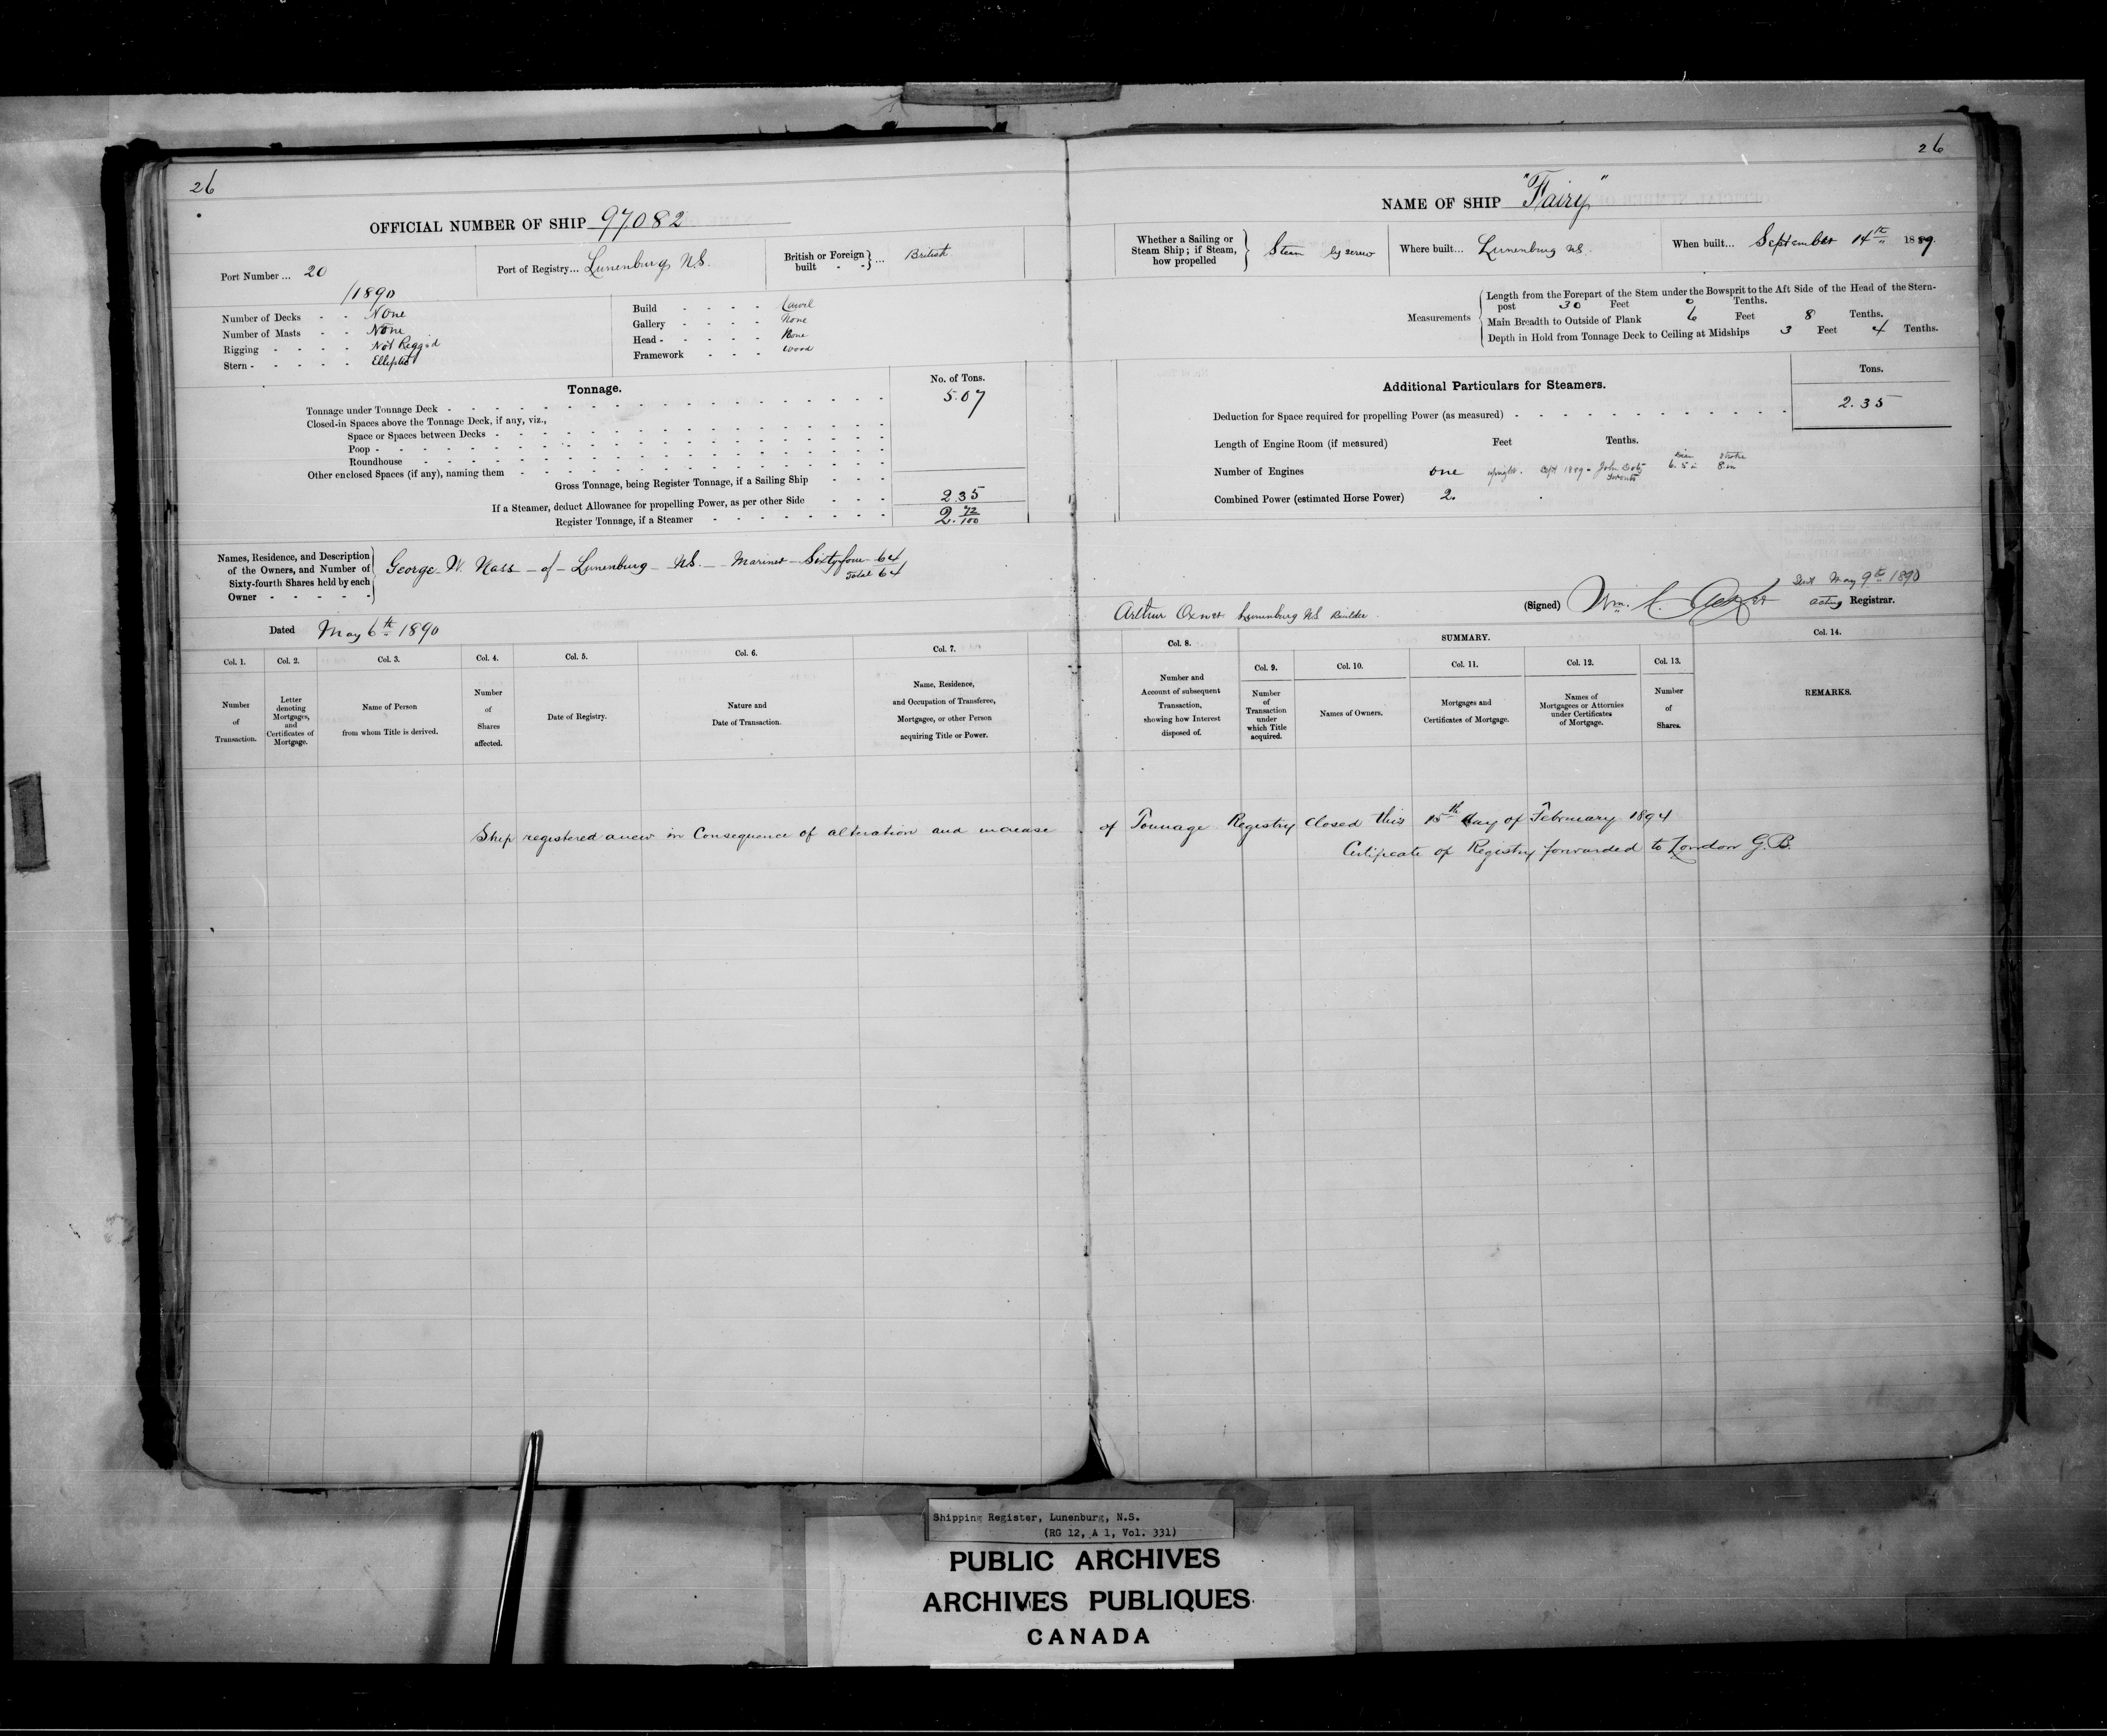 26
OFFICIAL NUMBER OF SHIP 97082
Port Number ... 20
/1890
Port of Registry... Lunenburg N.S.
British or Foreign built - - } ... British
Number of Decks - - None
Number of Masts - - None
Rigging - - - - Not Rigged
Stern - - - - - Elliptic
Build - - - -
Gallery - - - - None
Head - - - - - None
Framework - - - wood
Tonnage.
No. of Tons.
Tonnage under Tonnage Deck - 5.07
Closed-in Spaces above the Tonnage Deck, if any, viz.,
Space or Spaces between Decks -
Poop -
Roundhouse -
Other enclosed Spaces (if any), naming them -
Gross Tonnage, being Register Tonnage, if a Sailing Ship - - -
If a Steamer, deduct Allowance for propelling Power, as per other Side - - - 2.35
Register Tonnage, if a Steamer - 2. 72/100
Names, Residence, and Description
of the Owners, and Number of
Sixty-fourth Shares held by each
Owner - - - - -
George W. Nass - of - Lunenburg - N.S. - Mariner - Sixty four 64
Total 64
Dated May 6th 1890
Col. 1.
Number
of
Transaction.
Col. 2.
Letter
denoting
Mortgages,
and
Certificates of
Mortgage.
Col. 3.
Name of Person
from whom Title is derived.
Col. 4.
Number
of
Shares
affected.
Col. 5.
Date of Registry.
Col. 6.
Nature and
Date of Transaction.
Col. 7.
Name, Residence,
and Occupation of Transferee,
Mortgagee, or other Person
acquiring Title or Power.
26
NAME OF SHIP "Fairy"
Whether a Sailing or
Steam Ship; if Steam,
how propelled
Steam by screw
Where built... Lunenburg N.S.
When built... September 14th 1889.
Measurements
Length from the Forepart of the Stem under the Bowsprit to the Aft Side of the Head of the Stern-
post 30 Feet 0 Tenths.
Main Breadth to Outside of Plank 6 Feet 8 Tenths.
Depth in Hold from Tonnage Deck to Ceiling at Midships 3 Feet 4 Tenths.
Additional Particulars for Steamers.
Tons.
Deduction for Space required for propelling Power (as measured) - 2.35
Length of Engine Room (if measured) Feet Tenths.
Number of Engines one upright. 1889 - John Doty Toronto 6.5 in stroke 8 in
Combined Power (estimated Horse Power) 2.
Sent May 9th 1890
(Signed) Wm. acting Registrar.
Arthur Oxner Lunenburg N.S. Builder.
Col. 8.
Number and
Account of subsequent
Transaction,
showing how Interest
disposed of.
SUMMARY.
Col. 9.
Number
of
Transaction
under
which Title
acquired.
Col. 10.
Names of Owners.
Col. 11.
Mortgages and
Certificates of Mortgage.
Col. 12.
Names of
Mortgagees or Attornies
under Certificates
of Mortgage.
Col. 13.
Number
of
Shares.
Col. 14.
REMARKS.
Ship registered anew in Consequence of alteration and increase of Tonnage Registry Closed this 15th day of February 1894
Certificate of Registry forwarded to London G.B.
Shipping Register, Lunenburg, N.S.
(RG 12, A 1, Vol. 331)
PUBLIC ARCHIVES
ARCHIVES PUBLIQUES
CANADA